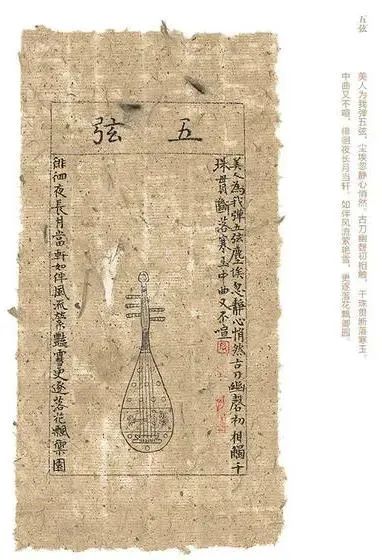 五弦
美人为我弹五弦，尘埃忽静心悄然。古刀幽磬初相触，千珠贯断落寒玉。
中曲又不喧，徘徊夜长月当轩。如伴风流萦艳雪，更逐落花飘御园。
五弦
美人為我弹五弦塵埃忽静心悄然古刀幽磬初相觸千
珠貫斷落寒玉中曲又不宣
徘徊夜長月當軒如伴風流縈艷雪更逐落花飄禦園